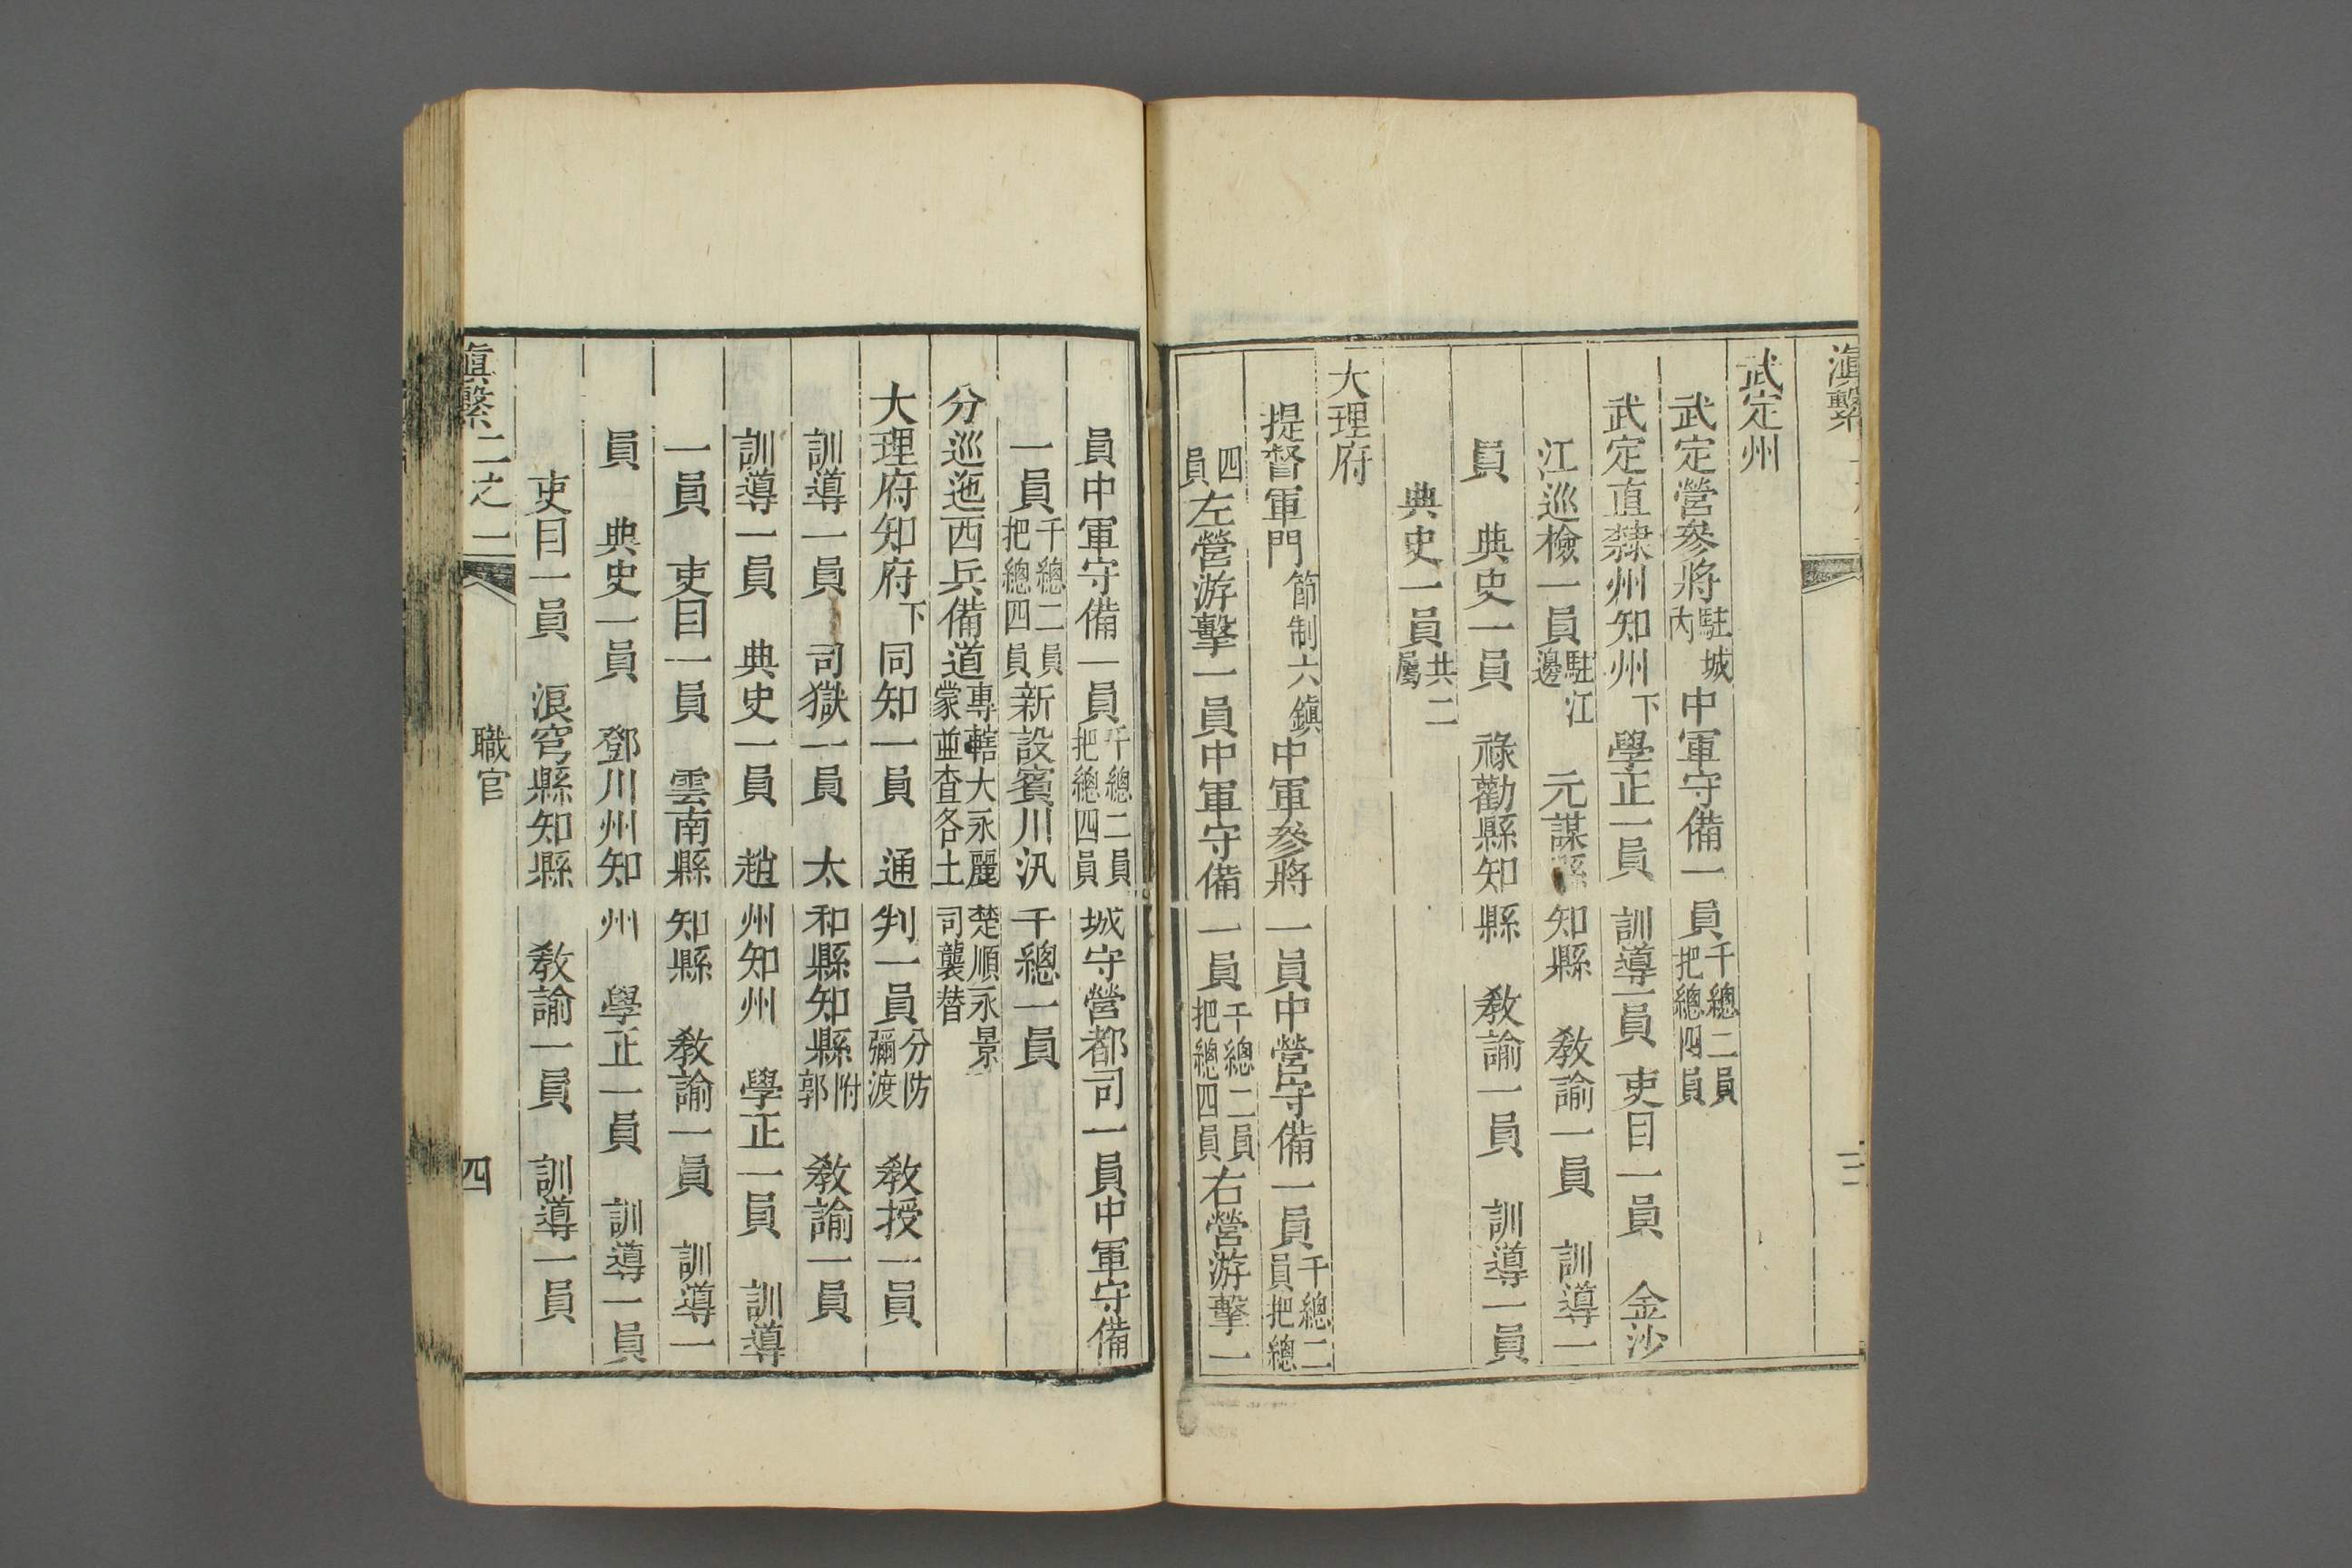 滇繫
三
武定州
武定營參將駐城內中軍守備一員千總二員把總四員
武定直隸州知州下 學正一員 訓導一員 吏目一員 金沙
江巡檢一員駐江邊 元謀縣知縣 敎諭一員 訓導一
員 典史一員 祿勸縣知縣 敎諭一員 訓導一員
典史一員共二屬
大理府
提督軍門節制六鎮中軍參將一員中營守備一員千總二員把總
四員左營游擊一員中軍守備一員千總二員把總四員右營游擊一
員中軍守備一員千總二員把總四員城守營都司一員中軍守備
一員千總二員把總四員新設賓川汛千總一員
分巡迤西兵備道專轄大永麗楚順永景蒙並查各土司襲替
大理府知府下 同知一員 通判一員分防彌渡 敎授一員
訓導一員 司獄一員 太和縣知縣附郭 敎諭一員
訓導一員 典史一員 趙州知州 學正一員 訓導
一員 吏目一員 雲南縣知縣 敎諭一員 訓導一
員 典史一員 鄧川州知州 學正一員 訓導一員
吏目一員 浪穹縣知縣 敎諭一員 訓導一員
滇繫 二之二 職官 四